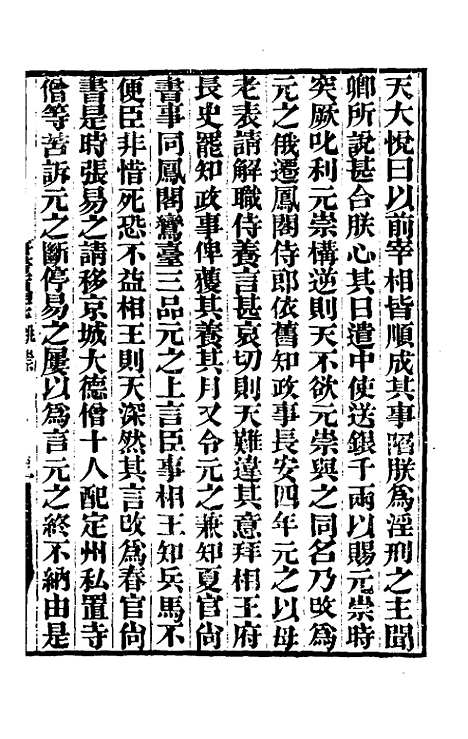 天大悅曰以前宰相皆順成其事䧟朕為淫刑之主聞
卿所說甚合朕心其日遣中使送銀千兩以賜元崇時
突厥叱利元崇構逆則天不欲元崇與之同名乃改為
元之俄遷鳳閣侍郎依舊知政事長安四年元之以母
老表請解職侍養言甚哀切則天難違其意拜相王府
長史罷知政事俾獲其養其月又令元之兼知夏官尚
書事同鳳閣鸞臺三品元之上言臣事相王知兵馬不
便臣非惜死恐不益相王則天深然其言改為春官尚
書是時張易之請移京城大德僧十人配定州私置寺
僧等苦訴元之斷停易之屢以為言元之終不納由是